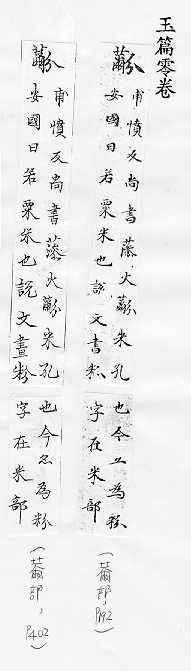 玉篇零卷
黺
甫憤反尚書藻火黺米孔
安國曰若粟米也說文畫粉
也今亦為粉
字在米部
(黹部,P192)
黺
甫憤反尚書藻火黺米孔
安國曰若粟米也說文畫粉
也今亦為粉
字在米部
(黹部,P402)